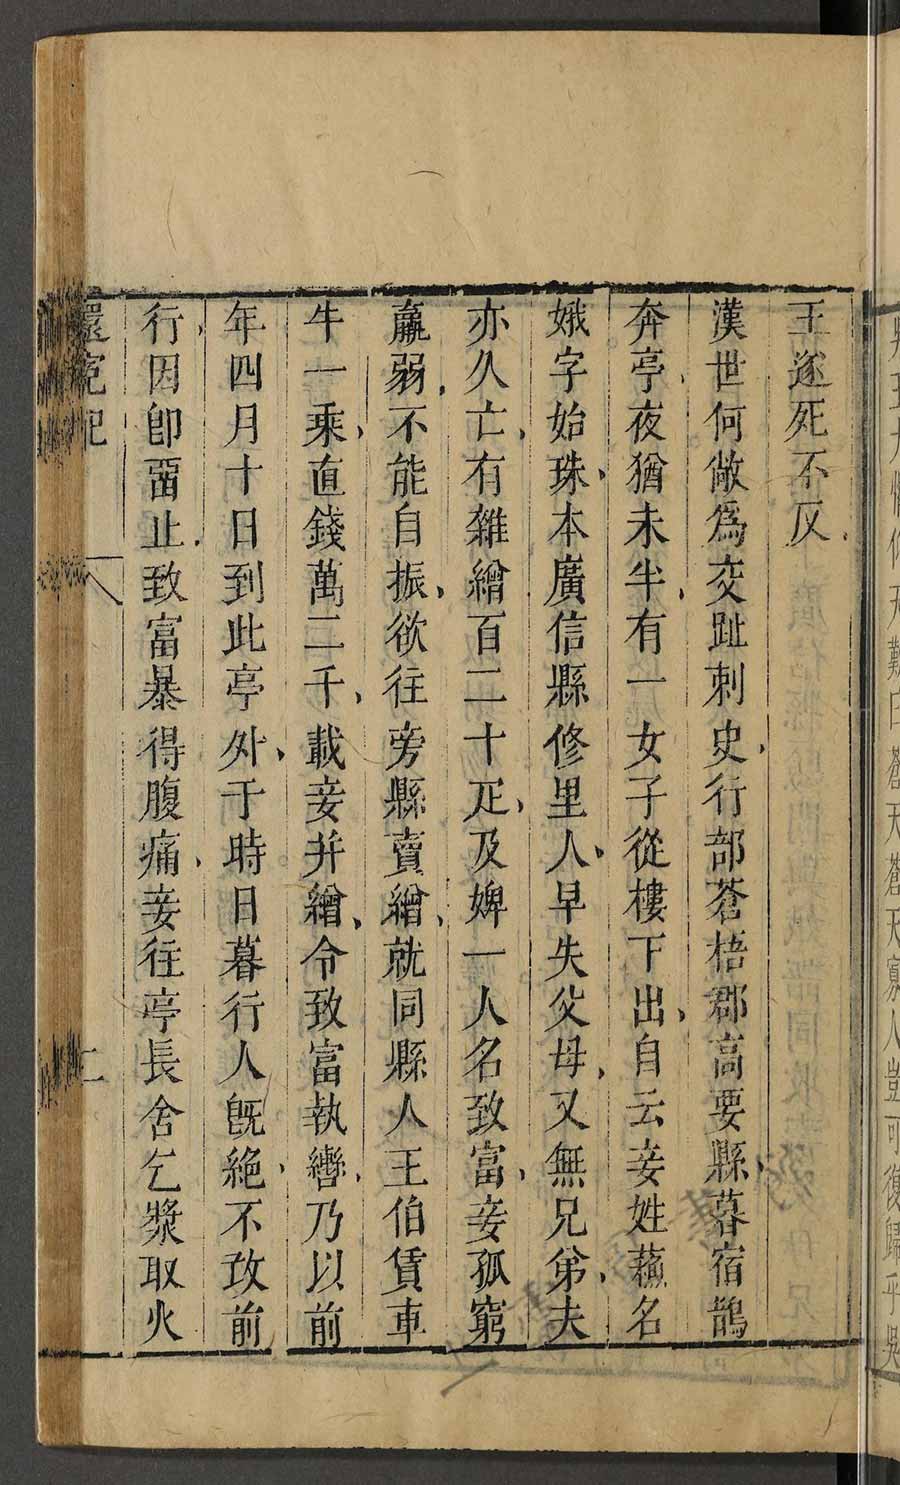 王遂死不反
漢世何敞爲交趾刺史行部蒼梧郡高要縣暮宿鵲
奔亭夜猶未半有一女子從樓下出自云妾姓蘓名
娥字始珠本廣信縣修里人早失父母又無兄弟夫
亦久亡有雜繒百二十疋及婢一人名致富妾孤窮
羸弱不能自振欲往旁縣賣繒就同縣人王伯賃車
牛一乘直錢萬二千載妾并繒令致富執轡乃以前
年四月十日到此亭外于時日暮行人旣絶不敢前
行因卽畱止致富暴得腹痛妾往亭長舍乞漿取火
還寃記
二